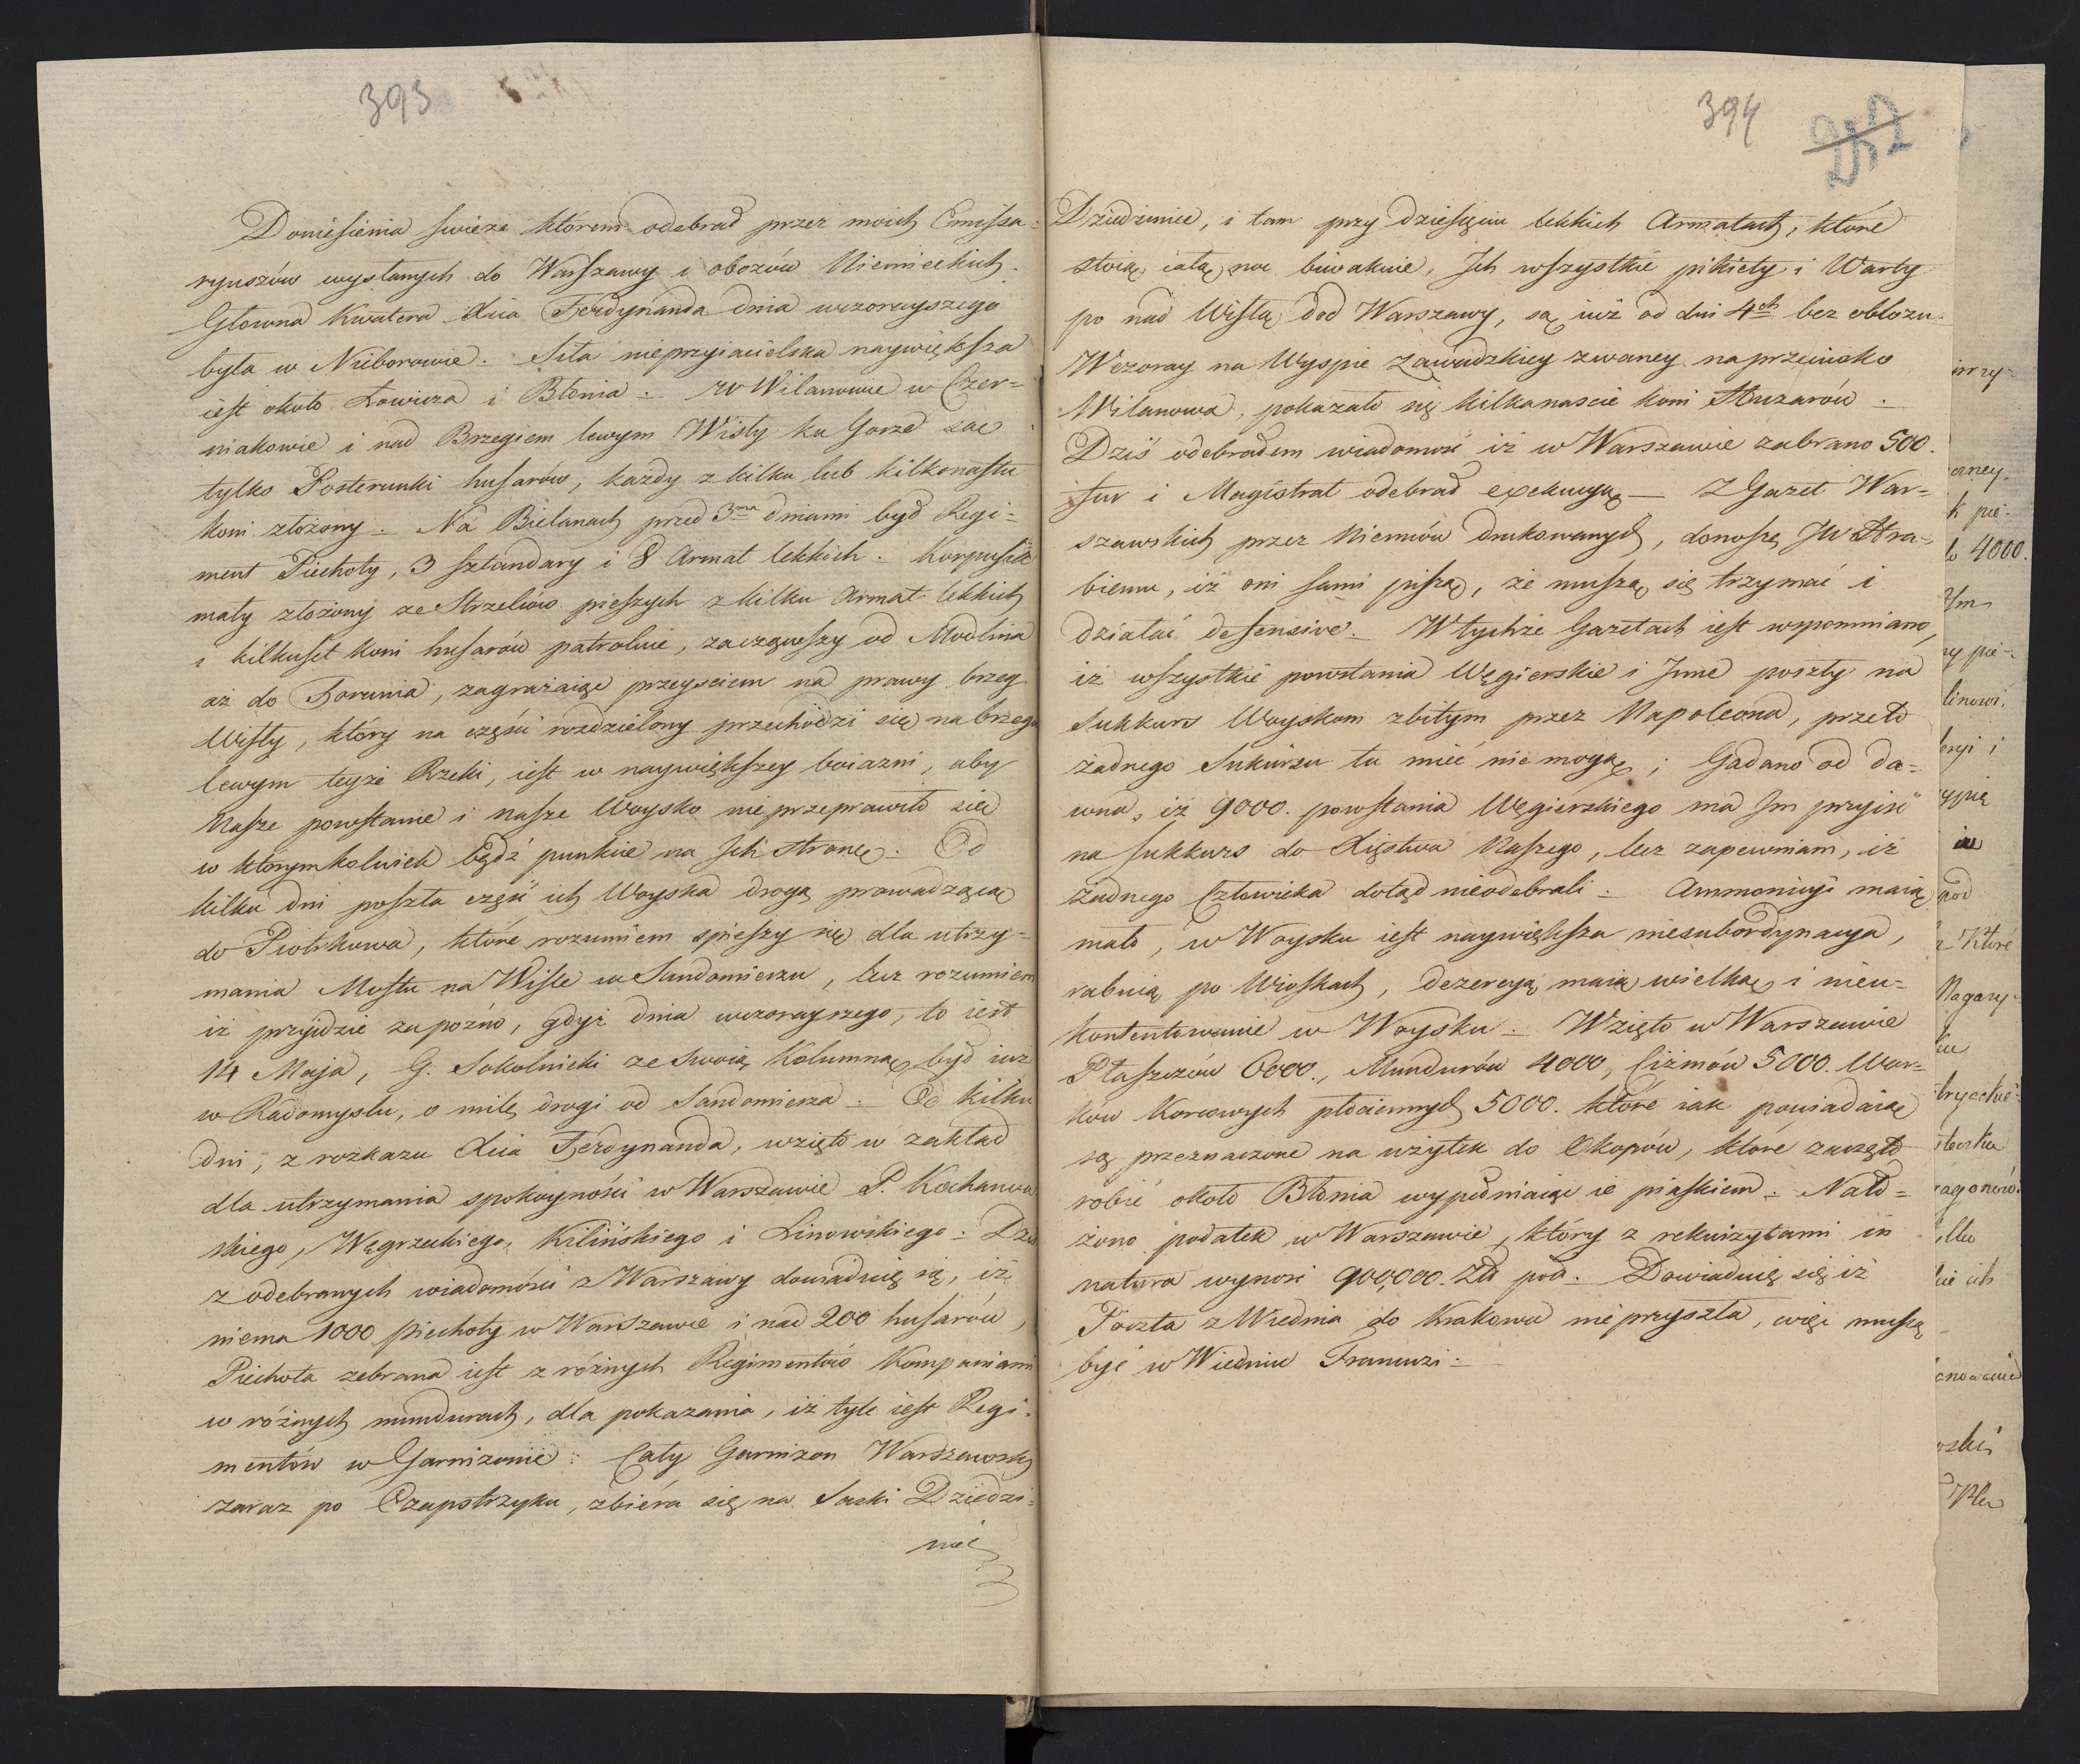 393
Doniesienia swieże którem odebrał przez moich Emissa-
ryuszów wysłanych do Warszawy i obozów Niemieckich.
Głowna Kwatera Xcia Ferdynanda dnia wczorayszego
była w Nieborowie. Siła nieprzyiacielska naywiększa
iest około Łowicza i Błonia. W Wilanowie w Czer=
niakowie i nad Brzegiem lewym Wisły ku Gorze są
tylko Posterunki husarów, każdy z kilku lub kilkonastu
koni złożony. Na Bielanach przed 3ma dniami był Regi=
ment Piechoty, 3 sztandary i 8 Armat lekkich. Korpusik
mały złożony ze Strzelców pieszych z kilku Armat lekkich
i kilkuset koni husarów patroluie, zacząwszy od Modlina
aż do Torunia, zagrażaiąc przeyściem na prawy brzeg
Wisły, który na części rozdzielony przechodzi się na brzegu
lewym teyże Rzeki, iest w naywiększey boiazni, aby
Nasze powstanie i nasze Woysko nie przeprawiło się
w którymkolwiek bądź punkcie na Ich stronę. Od
kilku dni poszła część ich Woyska drogą prowadzącą
do Piotrkowa, które rozumiem spieszy się dla utrzy=
mania Mostu na Wiśle w Sandomierzu, lecz rozumiem
iż przyidzie zapozno, gdyż dnia wczorayszego, to iest
14 Maja, G. Sokolnicki ze swoią Kolumną był iuz
w Radomyslu, o milę drogi od Sandomierza. Od kilku
dni, z rozkazu Xcia Ferdynanda, wzięto w zakład
dla utrzymania spokoyności w Warszawie P. Kochanow
skiego, Węgrzeckiego, Kilińskiego i Linowskiego. Dziś
z odebranych wiadomości z Warszawy dowiaduię się, iż
niema 1000 piechoty w Warszawie i nad 200 husarów,
Piechota zebrana iest z różnych Regimentów Kompaniami
w różnych mundurach, dla pokazania, iż tyle iest Regi-
mentów w Garnizonie. Cały Garnizon Warszawski
zaraz po Czapstrzyku, zbiéra się na Saski Dziedzi=
niec
394
Dziedziniec, i tam przy dziesięciu lekkich Armatach, które
stoią, całą noc biwakuie, Ich wszystkie pikiety i Warty
po nad Wisłą pod Warszawy, są iuż od dni 4ch bez obłozu
Wczoray na Wyspie Zawadzkiey zwaney naprzeciwko
Wilanowa, pokazało się kilkanascie koni Huzarów.
Dziś odebrałem wiadomość iż w Warszawie zabrano 500.
fur i Magistrat odebrał exekucyą — Z Gazet War=
szawskich przez Niemców drukowanych, donoszę JW Hra=
biemu, iż oni sami piszą, że muszą się trzymać i
działać defensive. W tychże Gazetach iest wspomniano,
iż wszystkie powstania Węgierskie i Inne poszły na
Sukkurs Woyskom zbitym przez Napoleona, przeto
żadnego Sukursu tu mieć nie mogą; Gadano od da=
wna, iż 9000. powstania Węgierskiego ma Im przyiść
na sukkurs do Xięstwa Naszego, lecz zapewniam, iż
żadnego Człowieka dotąd nieodebrali. Ammonicyi maią
mało, w Woysku iest naywiększa niesubordynacya,
rabuią po Wioskach, Dezercyą maią wielką i nieu-
kontentowanie w Woysku. Wzięto w Warszawie
Płaszczów 6000., Mundurów 4000, Ciżmów 5000. Wor=
ków Korcowych płóciennych 5000. które iak powiadaią
są przeznaczone na użytek do Okopów, które zaczęto
robić około Błonia wypełniaiąc ie piaskiem. Nało=
żono podatek w Warszawie, który z rekwizytami in
natura wynosi 900,000. Zł pol. Dowiaduię się iż
Poczta z Wiednia do Krakowa nie przyszła, więc muszą
być w Wiedniu Francuzi.